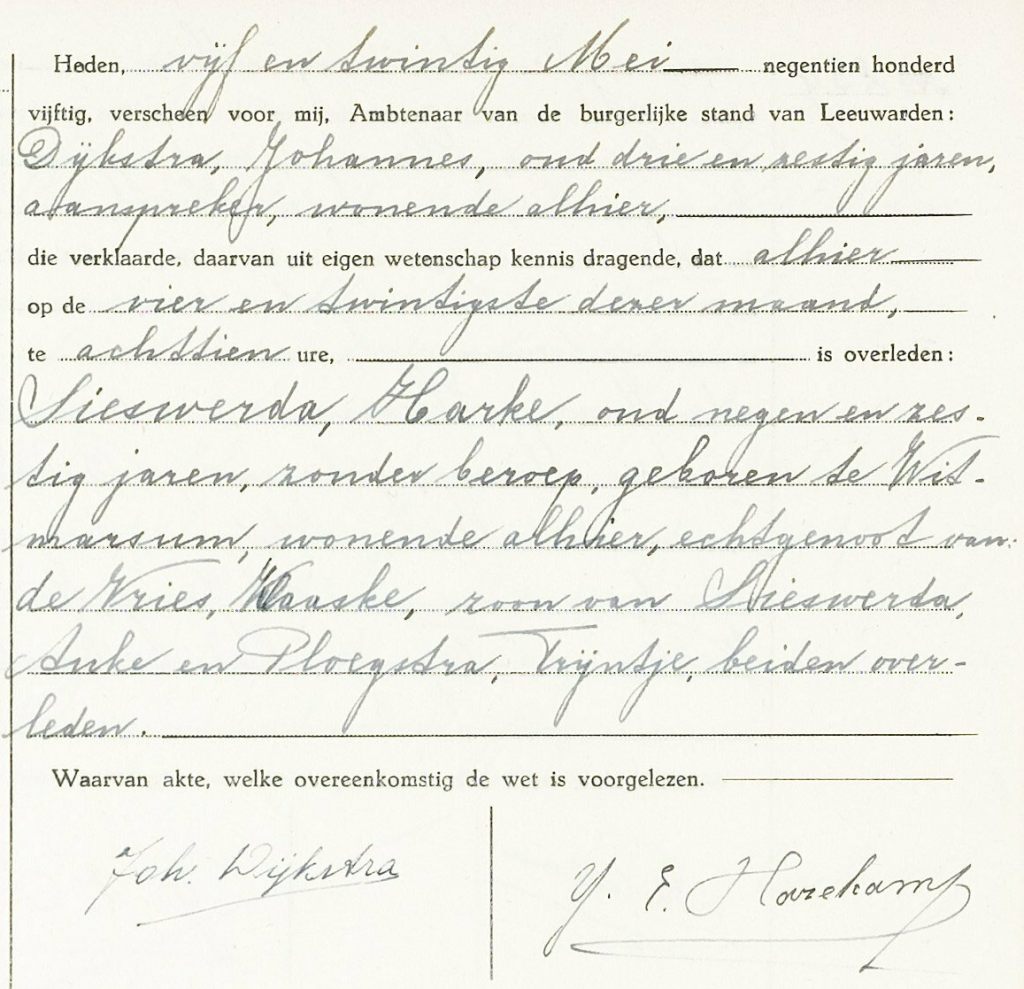 Heden, vijf en twintig Mei negentien honderd
vijftig, verscheen voor mij, Ambtenaar van de burgerlijke stand van Leeuwarden:
Dijkstra, Johannes, oud drie en zestig jaren,
aanspreker, wonende alhier,
die verklaarde, daarvan uit eigen wetenschap kennis dragende, dat alhier
op de vier en twintigste dezer maand,
te achttien ure, is overleden:
Sieswerda, Harke, oud negen en zes-
tig jaren, zonder beroep, geboren te Wit-
marsum, wonende alhier, echtgenoot van:
de Vries, Klaaske, zoon van Sieswerda,
Anke en Ploegstra, Trijntje, beiden over-
leden.
Waarvan akte, welke overeenkomstig de wet is voorgelezen.
Joh. Dijkstra
Y. E. Hazekamp